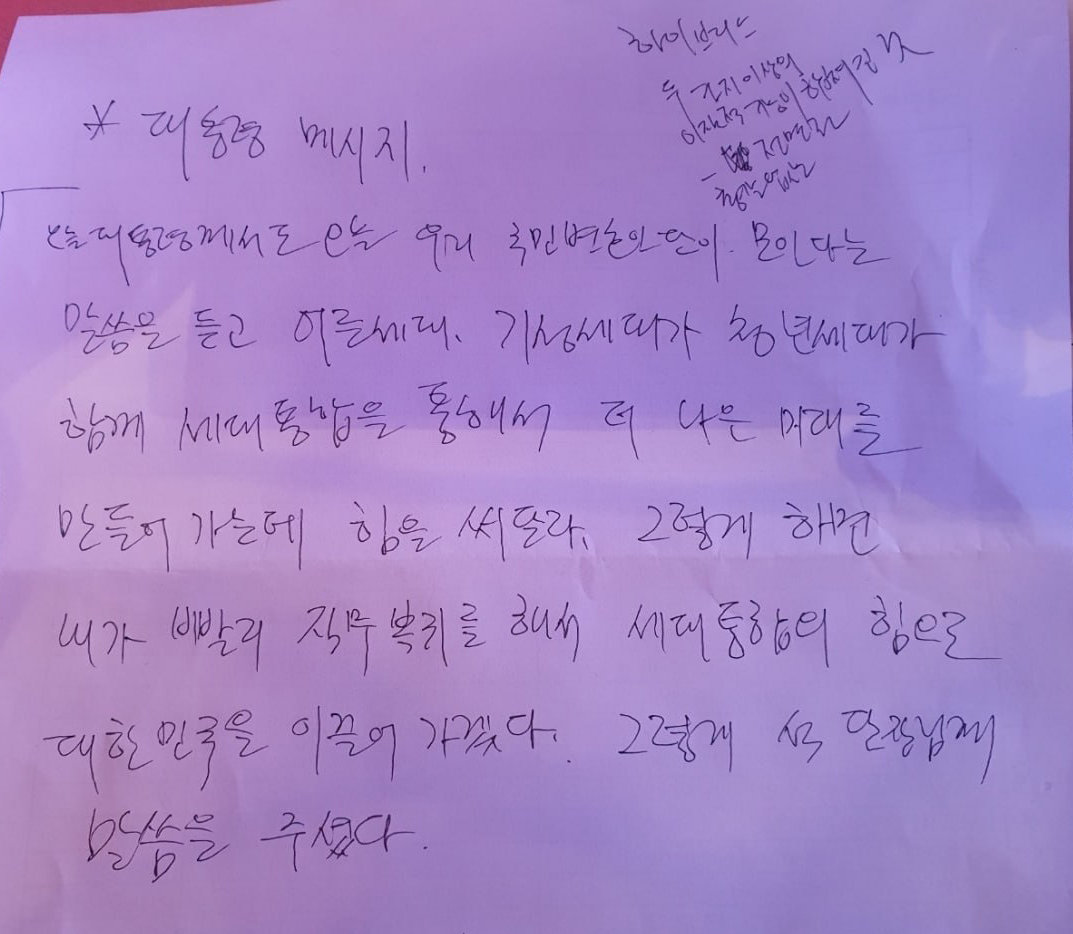 하이브리드
두 가지 이상의
이질적 기능이 합쳐진 것
* 대통령 메시지.
오늘 대통령께서도 오늘 우리 국민변호인단이 모인다는
말씀을 듣고 어른세대. 기성세대가 청년세대가
함께 세대통합을 통해서 더 나은 미래를
만들어 가는데 힘을 써달라. 그렇게 하면
내가 빨리 직무복귀를 해서 세대통합의 힘으로
대한민국을 이끌어 가겠다. 그렇게 석 단장님께
말씀을 주셨다.